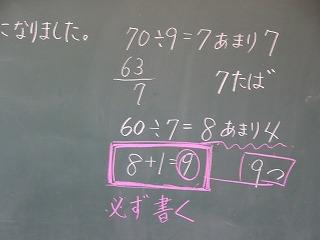 になりました。
70÷9=7あまり7
63
7
7たば
60÷7=8あまり4
8+1=9
9つ
必ず書く